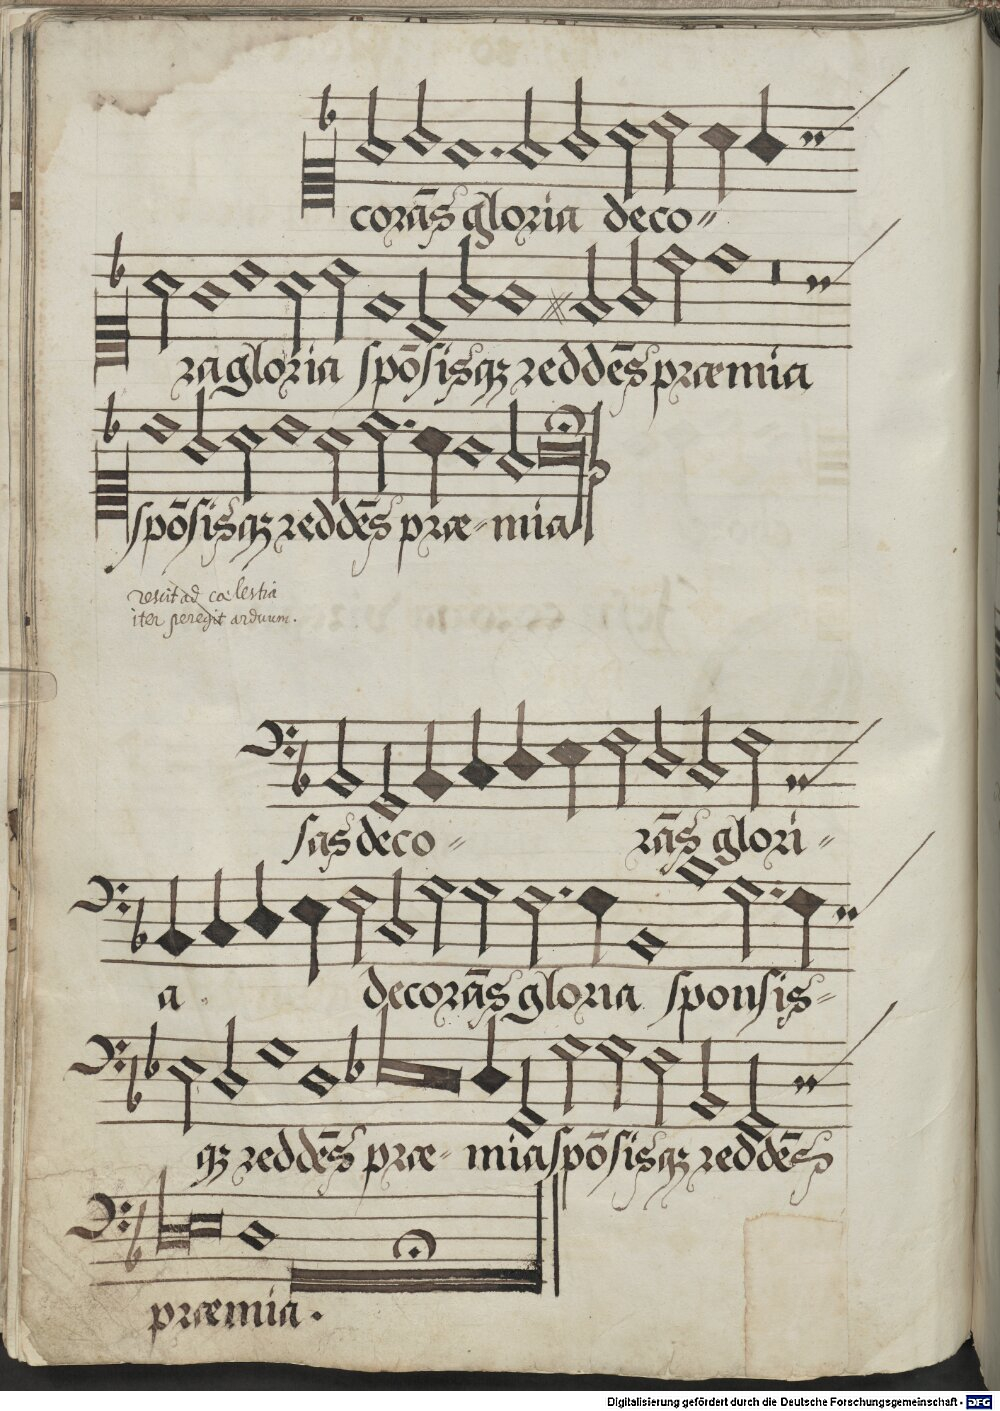 corās gloria deco〃
ra gloria spōsisqȝ reddēs præmia
spōsisqȝ reddēs præ-mia
ad cœlestia
iter peregit arduum.
sas deco〃 rās glori〃
a. decorās gloria sponsis〃
qȝ reddēs præ-mia spōsisqȝ reddēs
præmia.
Digitalisierung gefördert durch die Deutsche Forschungsgemeinschaft - DFG